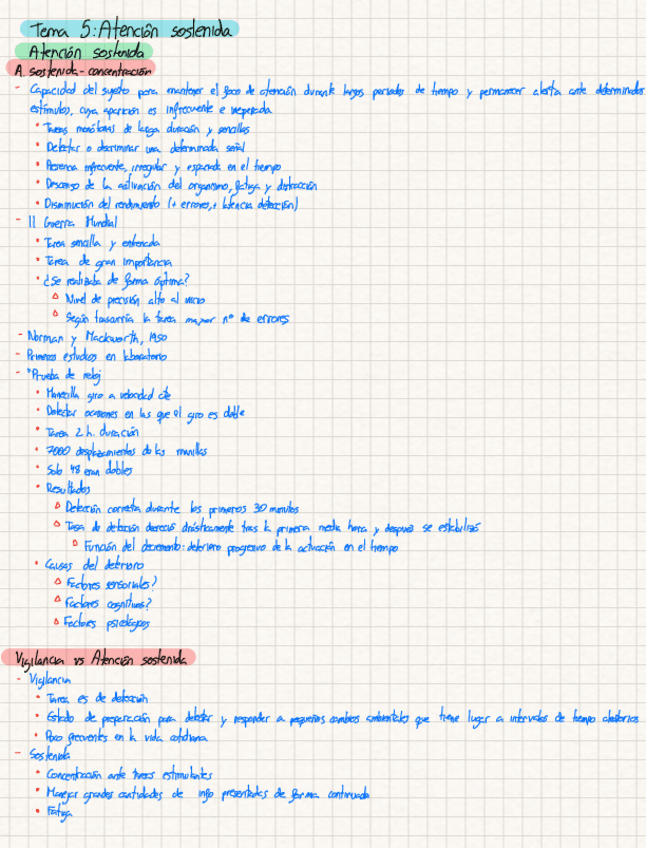 Tema 5: Atención sostenida
Atención sostenida
A. sostenida - concentración
- Capacidad del sujeto para mantener el foco de atención durante largos periodos de tiempo y permanecer alerta ante determinados
estímulos, cuya aparición es infrecuente e inesperada
• Tareas monótonas de larga duración y sencillas
• Detectar o discriminar una determinada señal
• Presencia infrecuente, irregular y espaciada en el tiempo
• Descenso de la activación del organismo, fatiga y distracción
• Disminución del rendimiento (+ errores, + latencia detección)
- II Guerra Mundial
• Tarea sencilla y entrenada
• Tarea de gran importancia
• ¿Se realizaba de forma óptima?
Nivel de precisión alto al inicio
Según trascurría la tarea mayor nº de errores
- Norman y Mackworth, 1950
- Primeros estudios en laboratorio
- "Prueba de reloj
• Manecilla giro a velocidad cte
• Detectar ocasiones en las que el giro es doble
• Tarea 2 h. duración
• 7000 desplazamientos de las manillas
• Solo 48 eran dobles
• Resultados
Detección correcta durante los primeros 30 minutos
Tasa de detección decreció drásticamente tras la primera media hora y después se estabilizó
Función del decremento: deterioro progresivo de la actuación en el tiempo
• Causas del deterioro
Factores sensoriales?
Factores cognitivos?
Factores psicológicos
Vigilancia vs Atención sostenida
- Vigilancia
• Tarea es de detección
• Estado de preparación para detectar y responder a pequeños cambios ambientales que tiene lugar a intervalos de tiempo aleatorios
• Poco frecuentes en la vida cotidiana
- Sostenida
• Concentración ante tareas estimulantes
• Manejar grandes cantidades de info presentadas de forma continuada
• Fatiga